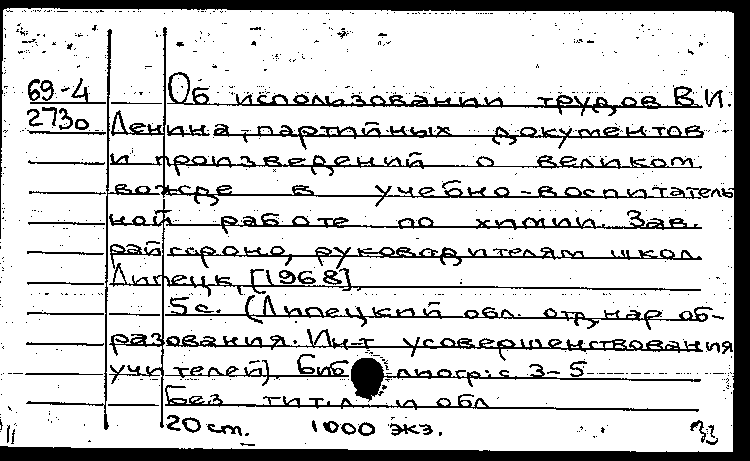 69-4 Об использовании трудов В.И.
273о Ленина, партийных документов
и произведений о великом
вожде в учебно-воспитатель
ной работе по химии. Зав.
рай гороно, руководителям школ.
Липецк, [1968].
5с. (Липецкий обл. отд, нар об-
разования. Ин-т усовершенствования
учителей). Библиогр: с. 3-5
Без тит. л и обл
20 ст. 1000 экз. 33